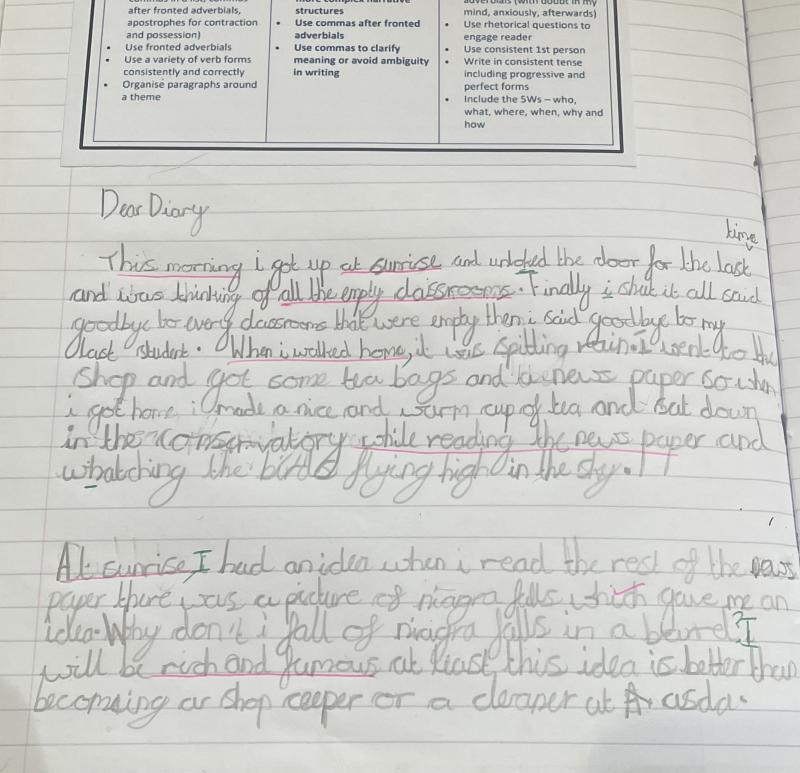 after fronted adverbials,
apostrophes for contraction
and possession)
• Use fronted adverbials
• Use a variety of verb forms
consistently and correctly
• Organise paragraphs around
a theme
structures
• Use commas after fronted
adverbials
• Use commas to clarify
meaning or avoid ambiguity
in writing
mind, anxiously, afterwards)
• Use rhetorical questions to
engage reader
• Use consistent 1st person
• Write in consistent tense
including progressive and
perfect forms
• Include the 5Ws – who,
what, where, when, why and
how
Dear Diary
time
This morning i got up at sunrise and unloked the door for the last
and i was thinking of all the empty classrooms. Finally i shut it all said
goodbye to every classrooms that were empty then i said goodbye to my
last student. When i walked home, it was spitting rain. I went to the
shop and got some tea bags and news paper so when
i got home i made a nice and warm cup of tea and sat down
in the conservatory while reading the news paper and
whatching the birds flying high in the sky.
At sunrise, I had an idea when i read the rest of the news
paper there was a picture of niagra falls which gave me an
idea. Why don't i fall of niagra falls in a barrel? I
will be rich and famous at least this idea is better than
becomeing a shop ceeper or a cleaner at asda.